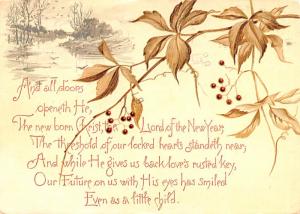 And all doors
openeth He,
The new born Krist, Lord of the New Year;
The threshold of our locked hearts standeth near;
And while He gives us back love's rusted key,
Our Future on us with His eyes has smiled
Even as a little child.